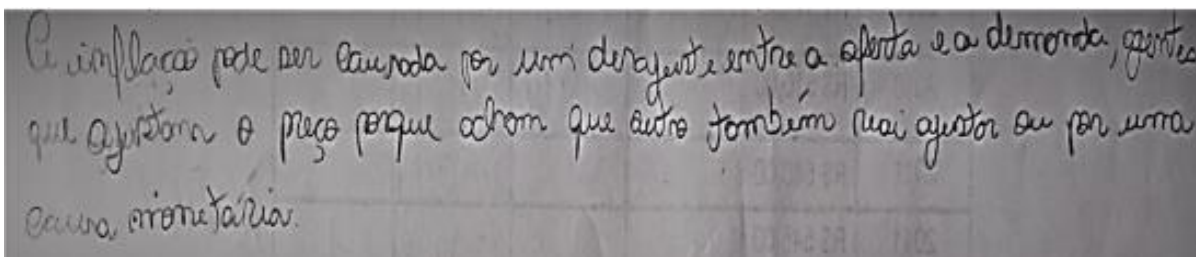 A inflação pode ser causada por um desajuste entre a oferta e a demanda, agentes
que ajustam o preço porque acham que outro também vai ajustar ou por uma
causa monetária.